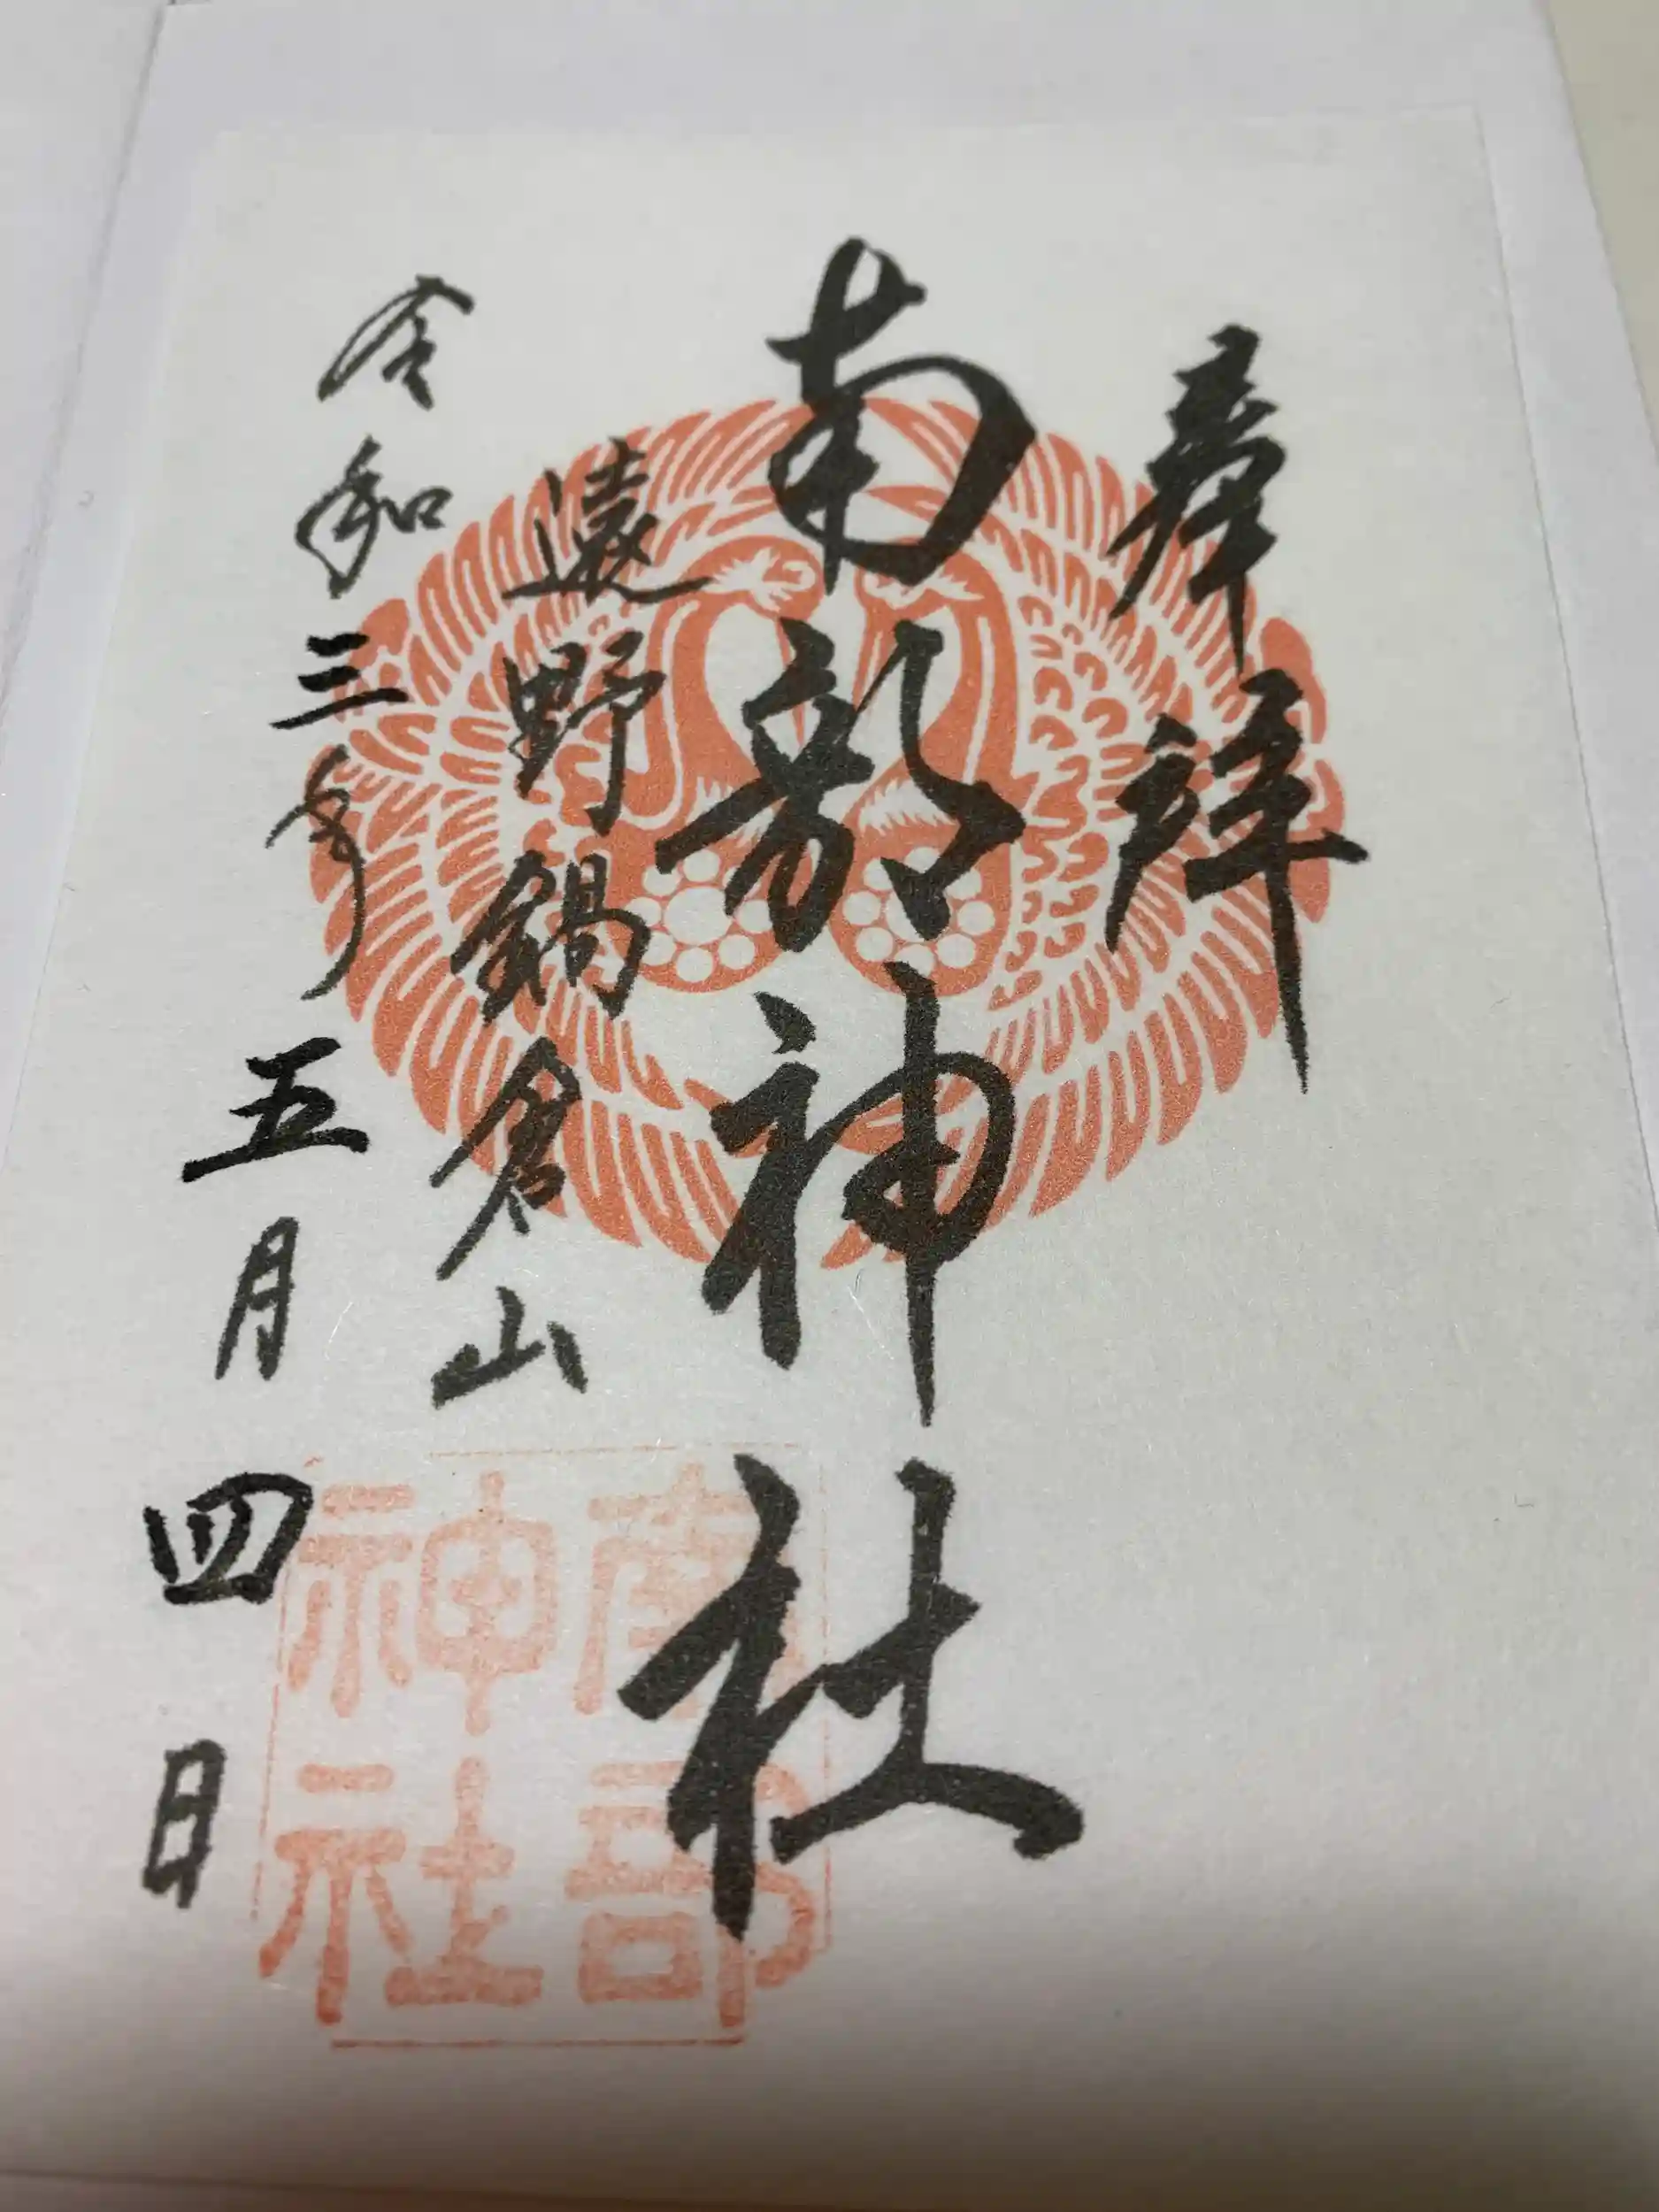 奉拝
南部神社
遠野鍋倉山
令和三年五月四日
南部
神社